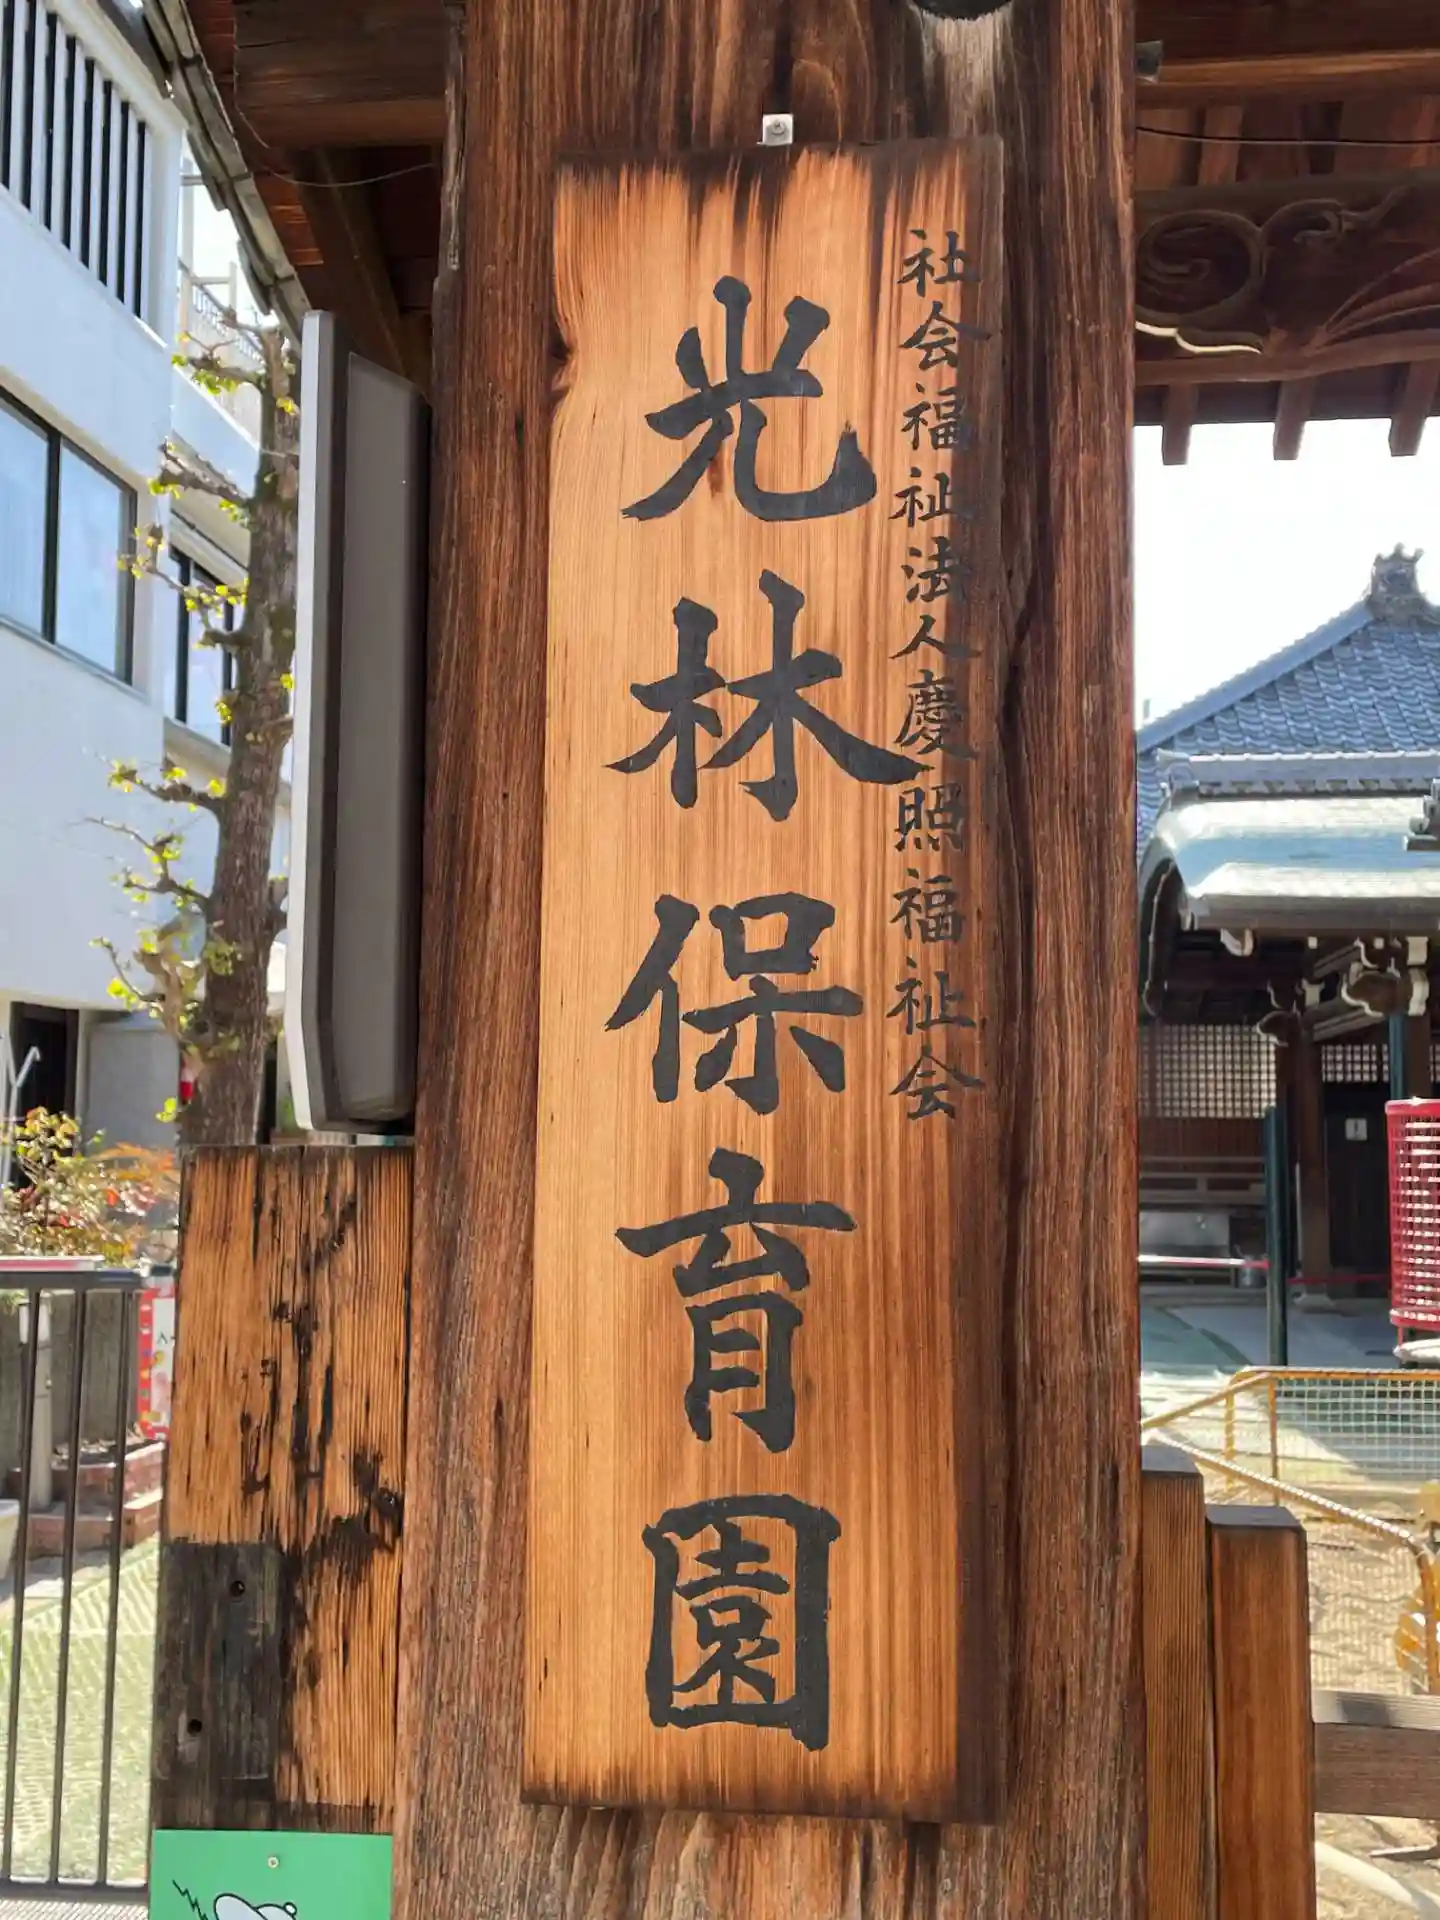 社会福祉法人慶照福祉会
光林保育園